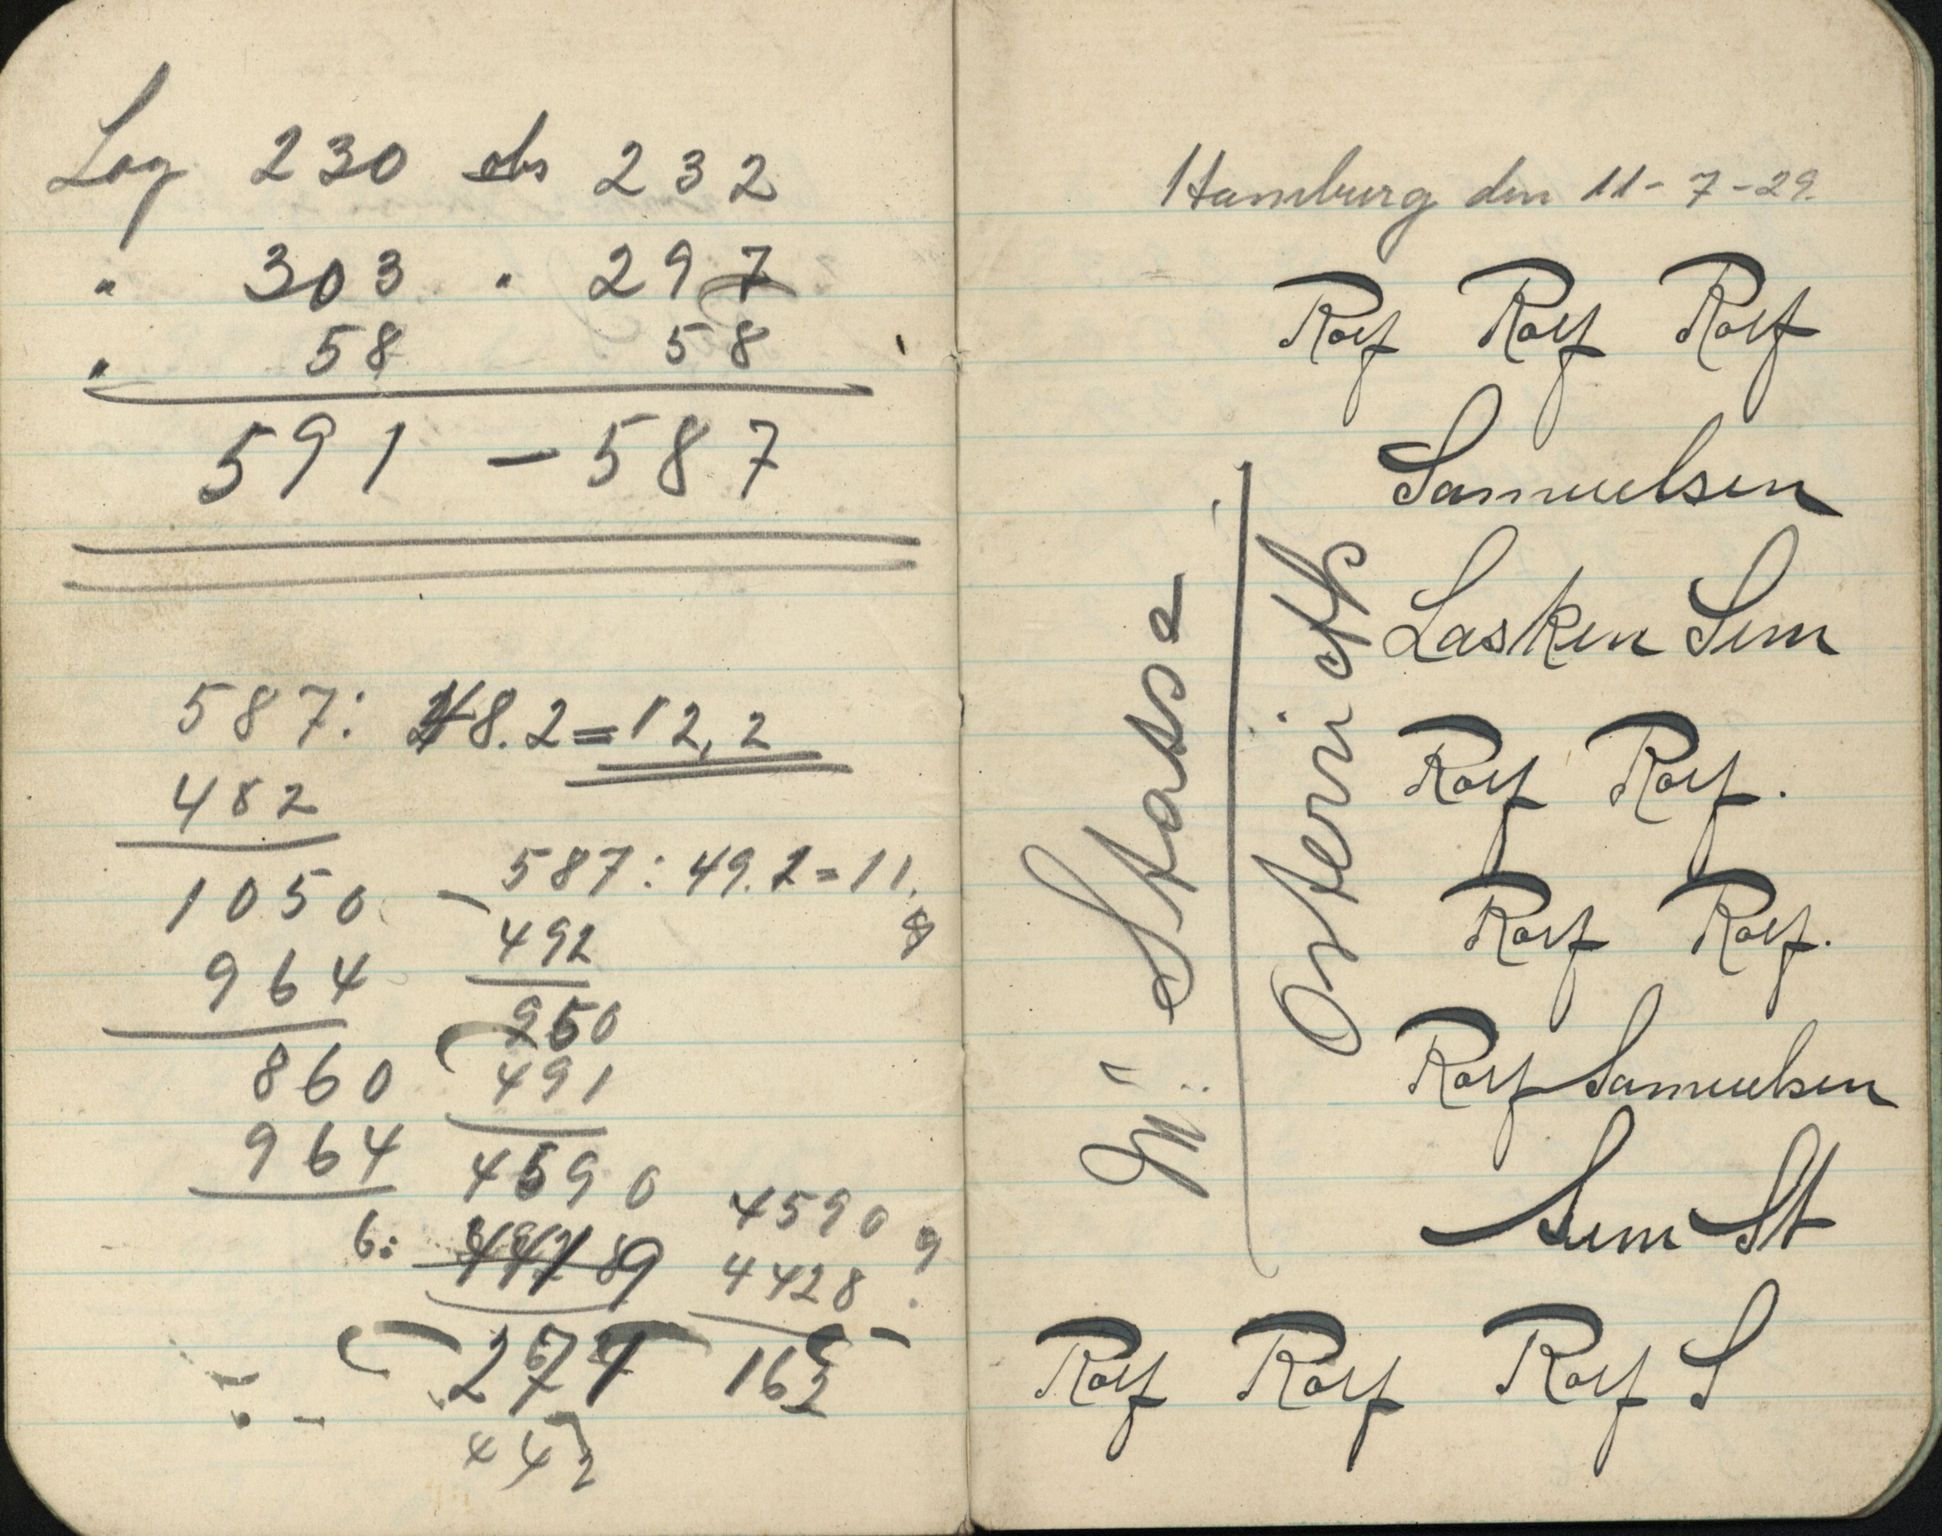 Log 230 obs 232
" 303 " 297
" 58 58
591 - 587
587: 48.2=12,2
482
1050
964
860
964
6:
587: 49.2=11.
492
950
491
4590
4590
4428
162
44
Hamburg den 11-7-29.
Rolf Rolf Rolf
Samuelsen
Lasken Sem
Rolf Rolf.
Rolf Rolf.
Rolf Samuelsen
Sem St
Rolf Rolf Rolf S
Stasse